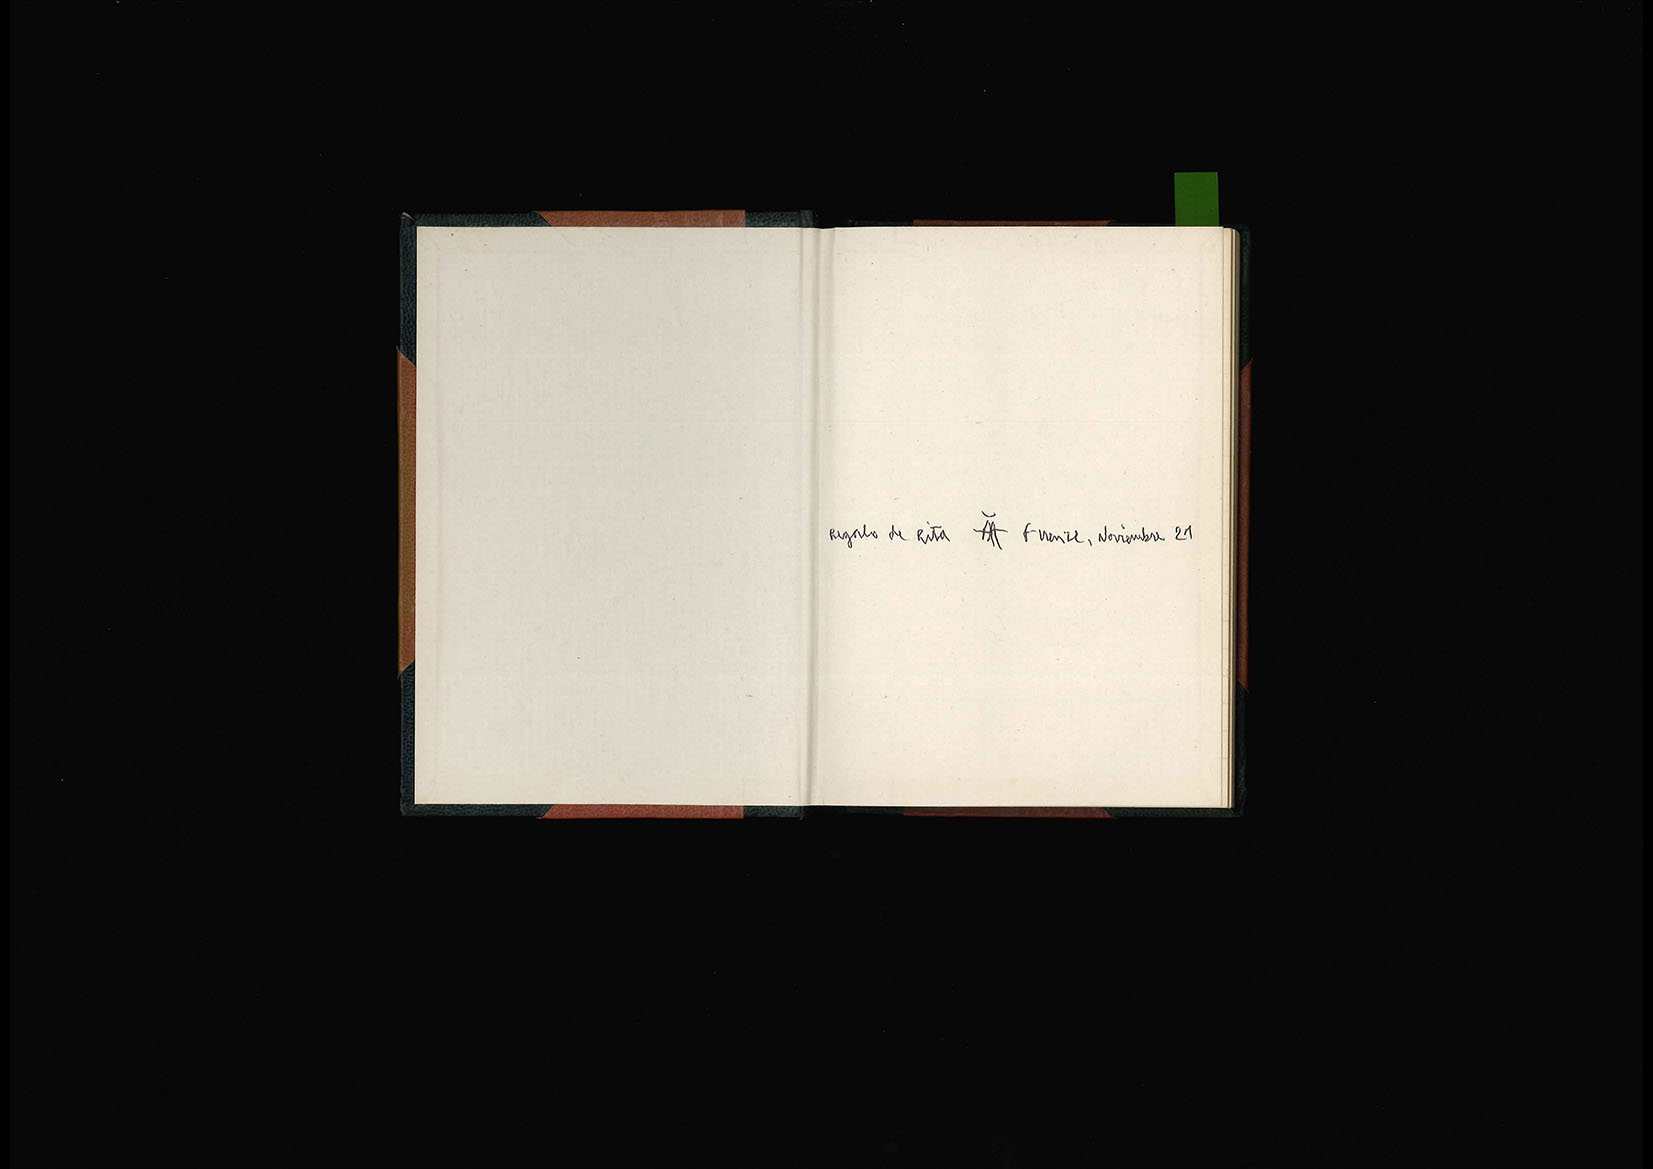 Regalo de Rita Firenze, Noviembre 21